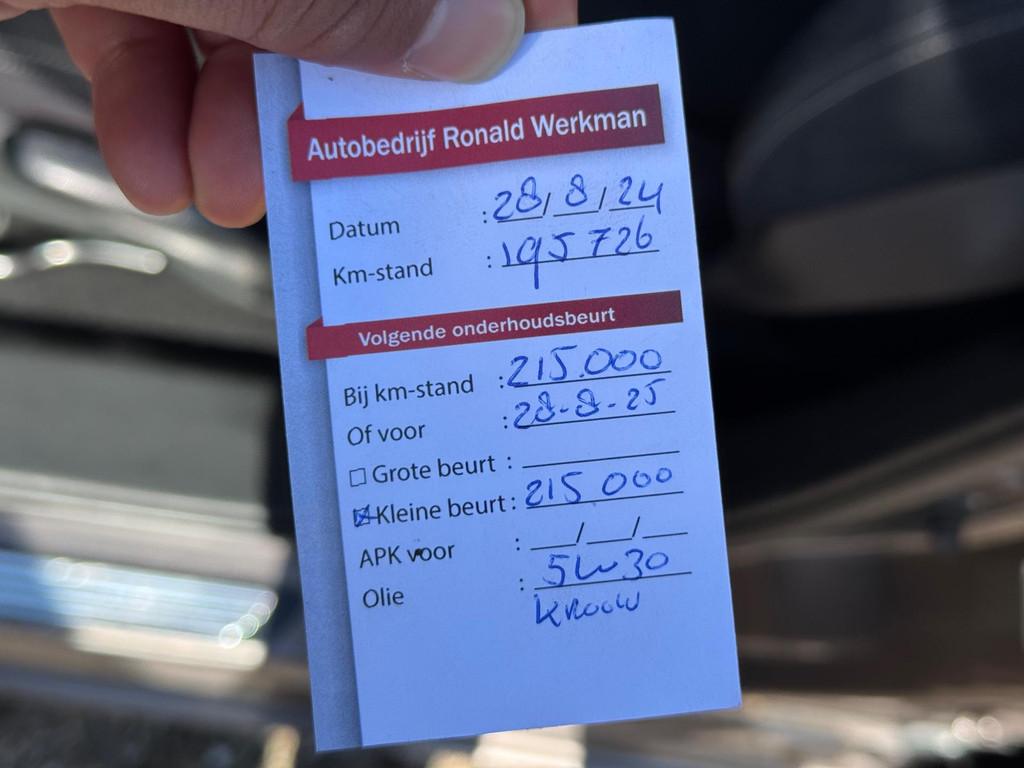 Autobedrijf Ronald Werkman
Datum : 28/8/24
Km-stand : 195726
Volgende onderhoudsbeurt
Bij km-stand : 215.000
Of voor : 28-8-25
☐ Grote beurt :
☒ Kleine beurt : 215 000
APK voor : __/__/__
Olie : 5W30
Kroow